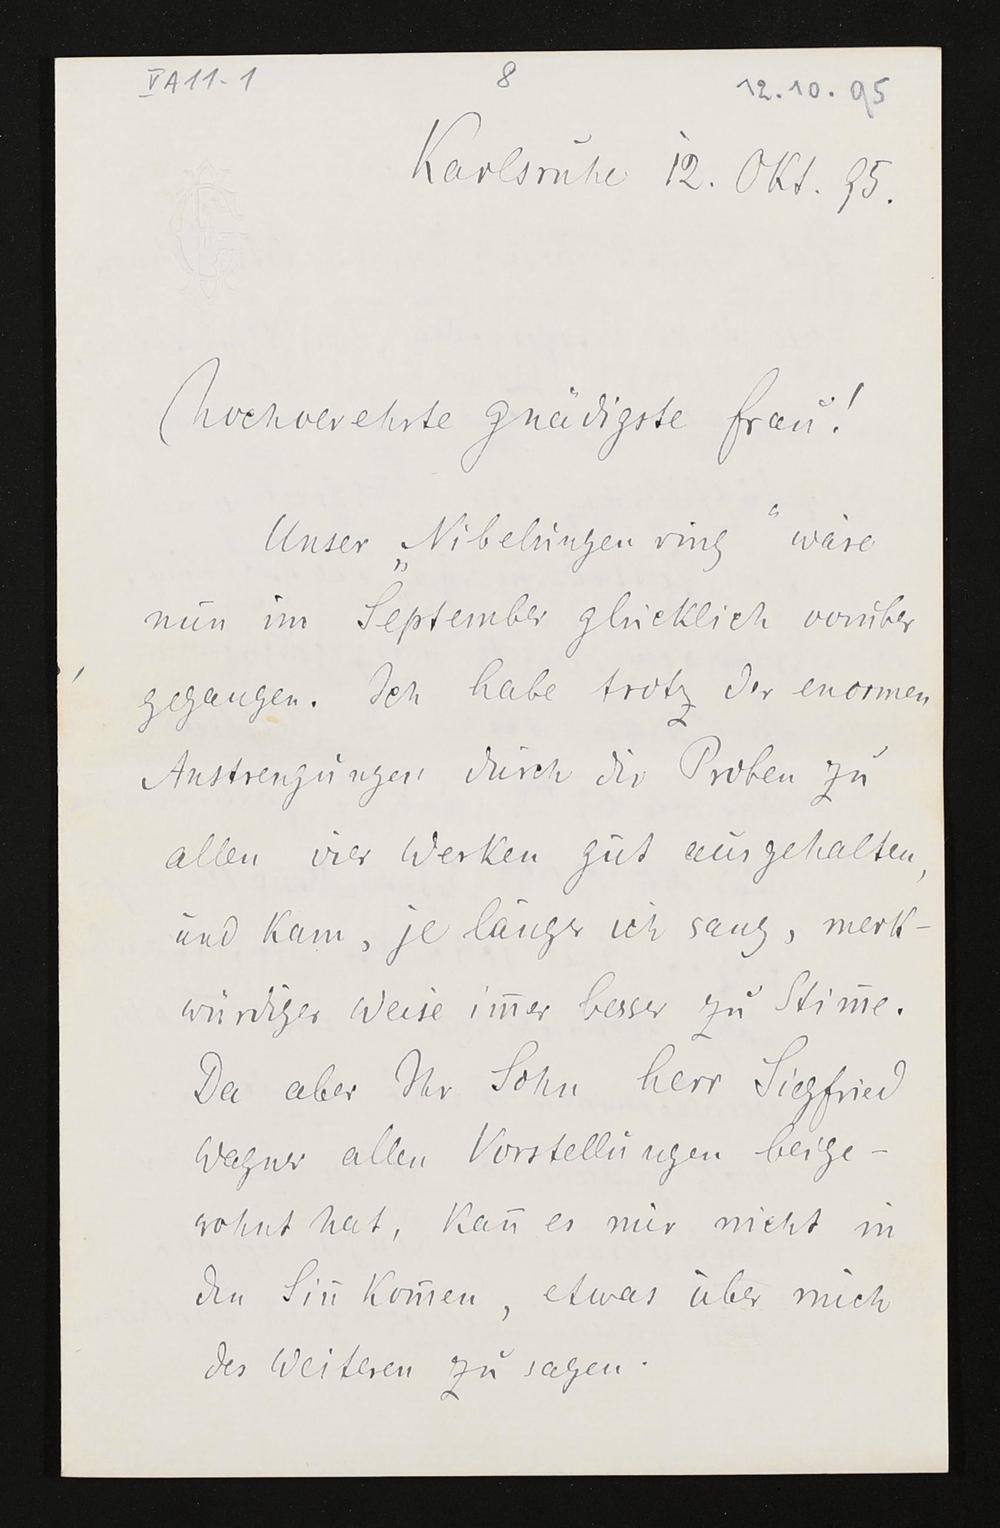 VA11-1 8 12.10.95
Karlsruhe 12. Okt. 95.
Hochverehrte gnädigste Frau!
Unser „Nibelungenring“ wäre
nun im September glücklich vorüber
gegangen. Ich habe trotz der enormen
Anstrengungen durch die Proben zu
allen vier Werken gut ausgehalten,
und kam, je länger ich sang, merk-
würdiger Weise im̅er besser zu Stim̅e.
Da aber Ihr Sohn Herr Siegfried
Wagner allen Vorstellungen beige-
wohnt hat, kan̅ es mir nicht in
den Sin̅ kom̅en, etwas über mich
des Weiteren zu sagen.